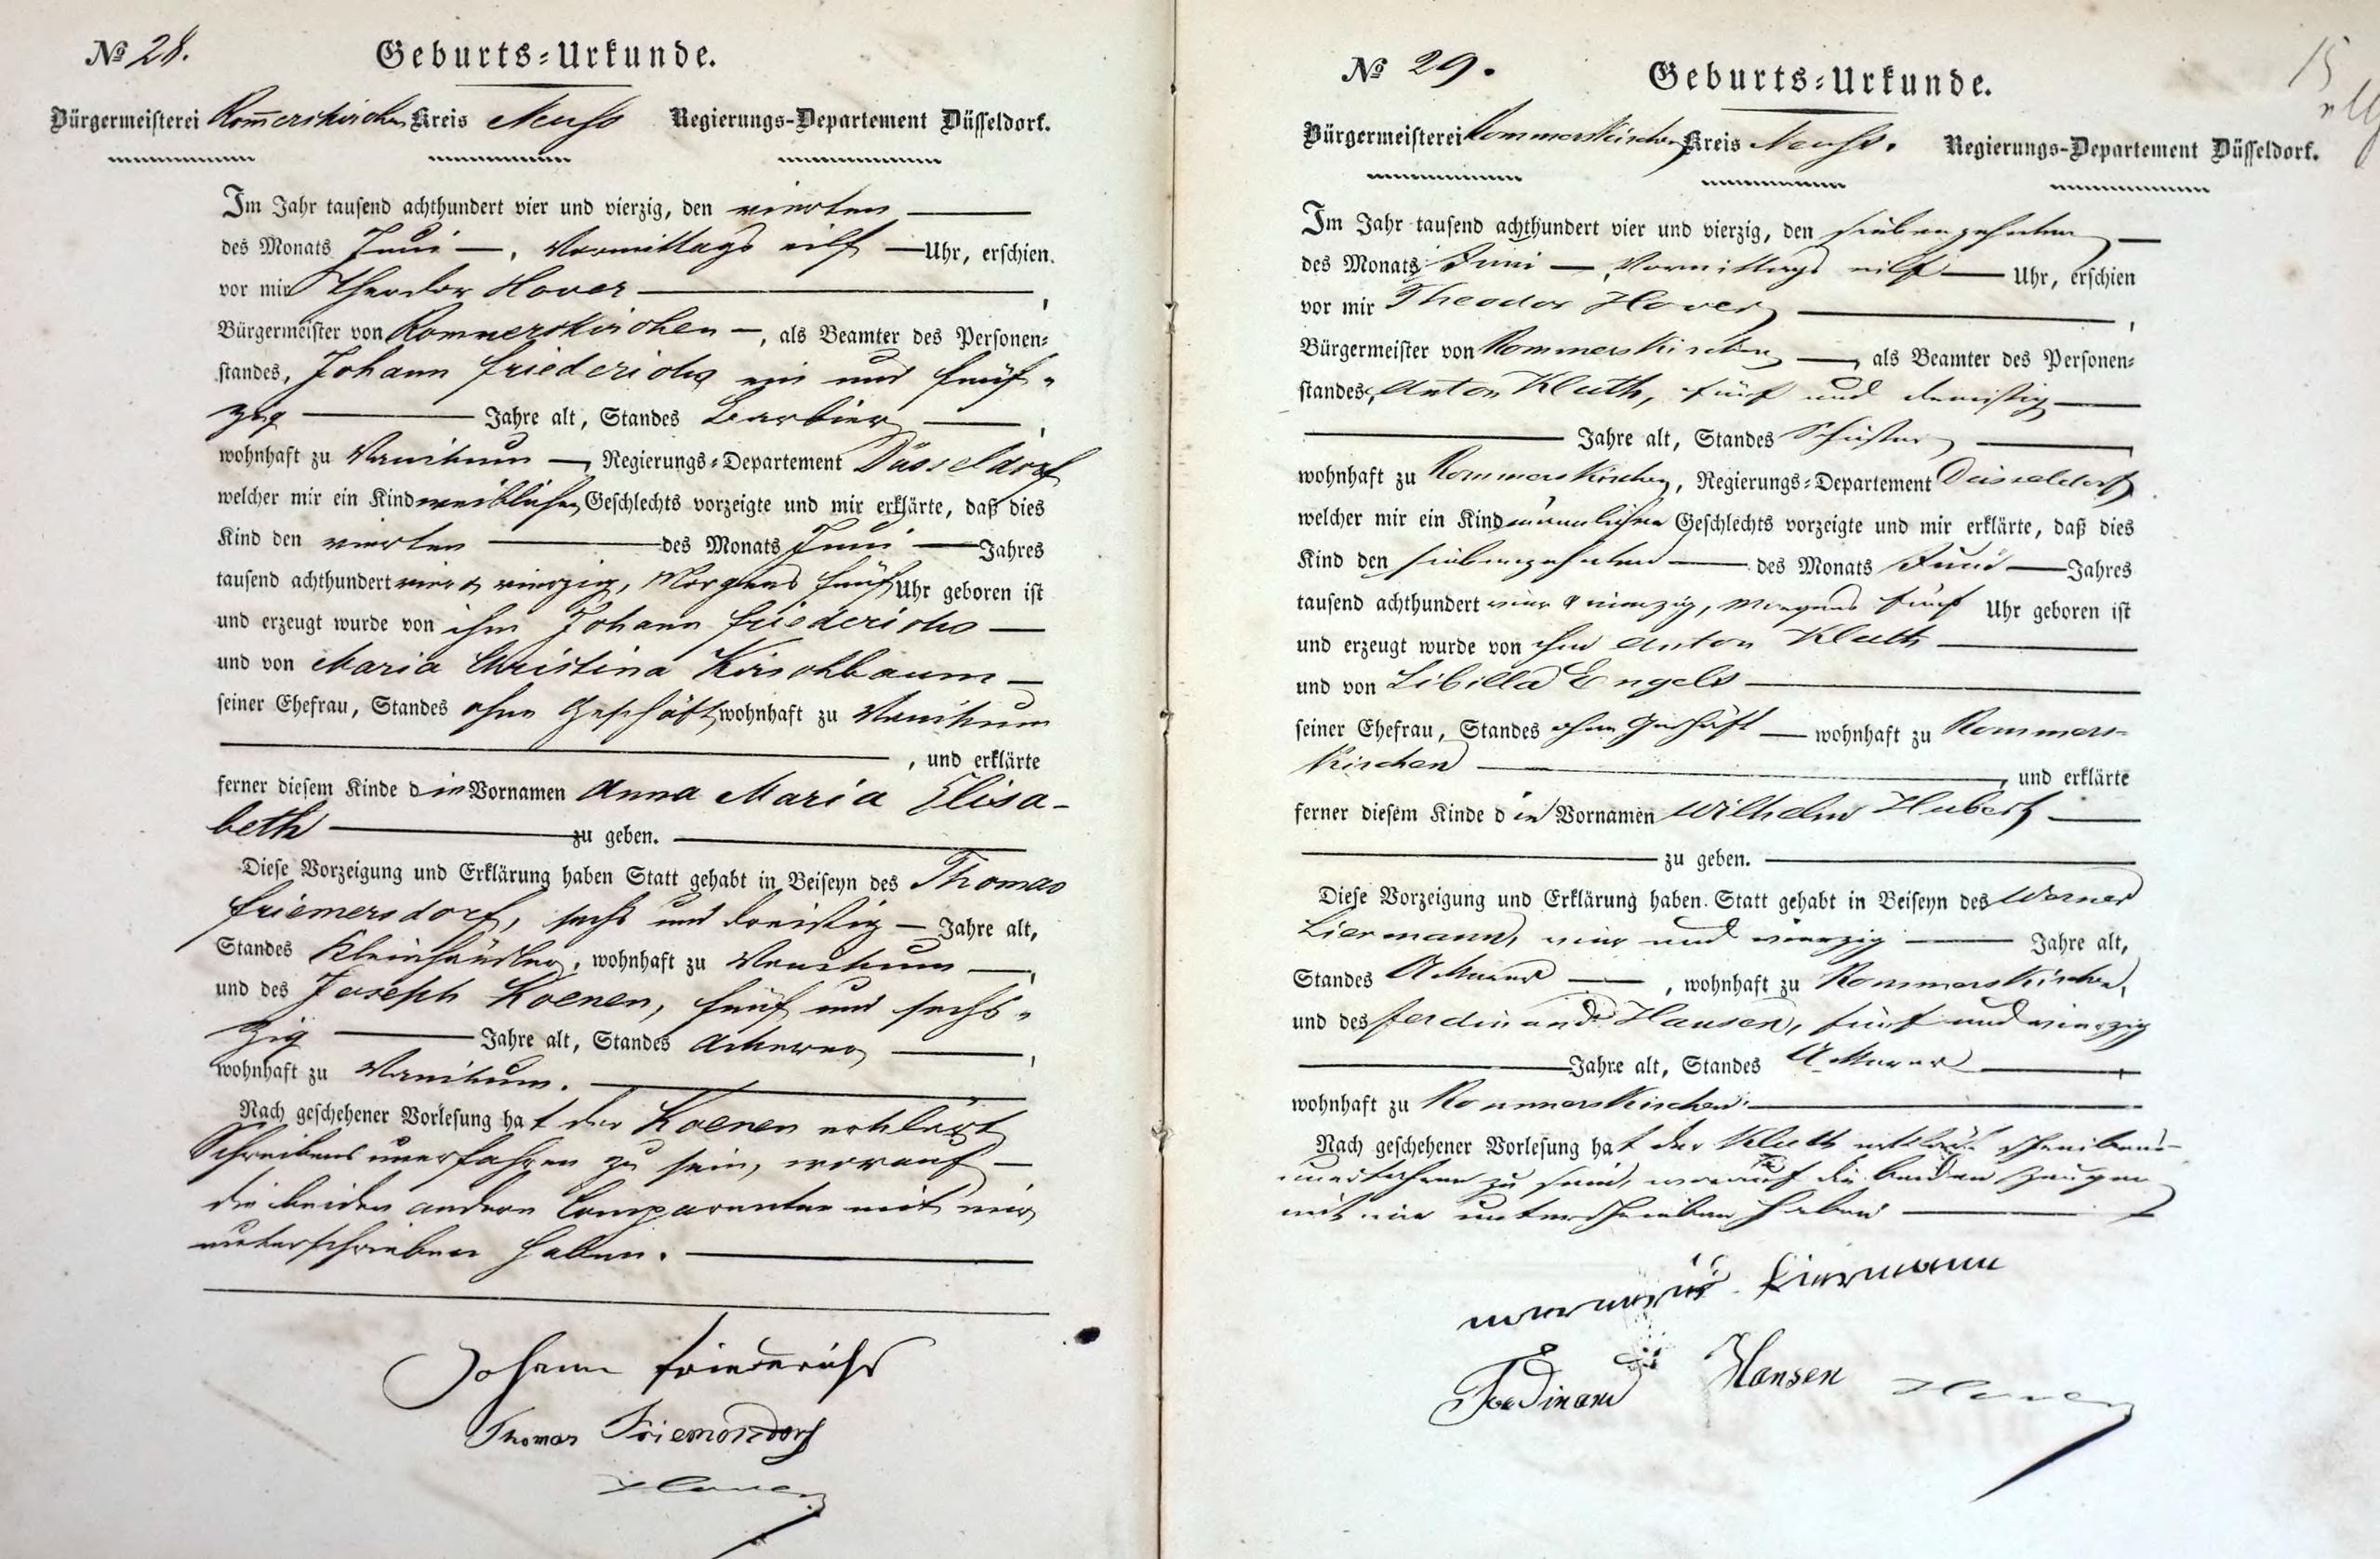 № 28. Geburts-Urkunde.
Bürgermeisterei Rom̅erskirchen Kreis Neuss Regierungs-Departement Düsseldorf.
Im Jahr tausend achthundert vier und vierzig, den vierten
des Monats Juni —, Vormittags eilf — Uhr, erschien
vor mir Theodor Hover —,
Bürgermeister von Rommerskirchen —, als Beamter des Personen-
standes, Johann Friederichs ein und fünf-
zig — Jahre alt, Standes Barbier —,
wohnhaft zu — Regierungs-Departement Düsseldorf
welcher mir ein Kind weiblichen Geschlechts vorzeigte und mir erklärte, daß dies
Kind den vierten — des Monats Juni — Jahres
tausend achthundert vier & vierzig, Morgens fünf Uhr geboren ist
und erzeugt wurde von ihm Johann Friederichs —
und von Maria Christina Kirschbaum —
seiner Ehefrau, Standes ohne Geschäft wohnhaft zu
—, und erklärte
ferner diesem Kinde die Vornamen Anna Maria Elisa-
beth — zu geben. —
Diese Vorzeigung und Erklärung haben Statt gehabt in Beiseyn des Thomas
Friemersdorf, sechs und dreißig — Jahre alt,
Standes Kleinhändler, wohnhaft zu —,
und des Joseph Koenen, fünf und sechs-
zig — Jahre alt, Standes Ackerer —,
wohnhaft zu —
Nach geschehener Vorlesung hat der Koenen erklärt
Schreibens unerfahren zu sein, worauf —
die beiden andern Comparenten mit mir
unterschrieben haben. —
Johann Friederichs
Thomas Friemersdorf
Hover
15
№ 29. Geburts-Urkunde.
Bürgermeisterei Rommerskirchen Kreis Neuss. Regierungs-Departement Düsseldorf.
Im Jahr tausend achthundert vier und vierzig, den siebenzehnten —
des Monats Juni —, Vormittags eilf — Uhr, erschien
vor mir Theodor Hover —,
Bürgermeister von Rommerskirchen —, als Beamter des Personen-
standes, Anton Kluth, fünf und dreißig —
— Jahre alt, Standes Schuster —,
wohnhaft zu Rommerskirchen, Regierungs-Departement Düsseldorf
welcher mir ein Kind männlichen Geschlechts vorzeigte und mir erklärte, daß dies
Kind den siebenzehnten — des Monats Juni — Jahres
tausend achthundert vier & vierzig, Morgens fünf Uhr geboren ist
und erzeugt wurde von ihm Anton Kluth —
und von Sibilla Engels —
seiner Ehefrau, Standes ohne Geschäft — wohnhaft zu Rommers-
kirchen —, und erklärte
ferner diesem Kinde die Vornamen Wilhelm Hubert —
— zu geben. —
Diese Vorzeigung und Erklärung haben Statt gehabt in Beiseyn des Werner
Liermann, vier und vierzig — Jahre alt,
Standes Ackerer —, wohnhaft zu Rommerskirchen,
und des Ferdinand Hansen, fünf und vierzig
— Jahre alt, Standes Ackerer —,
wohnhaft zu Rommerskirchen. —
Nach geschehener Vorlesung hat der Kluth erklärt Schreibens-
unerfahren zu sein, worauf die beiden Zeugen
mit mir unterschrieben haben —
Liermann
Ferdinand Hansen Hover